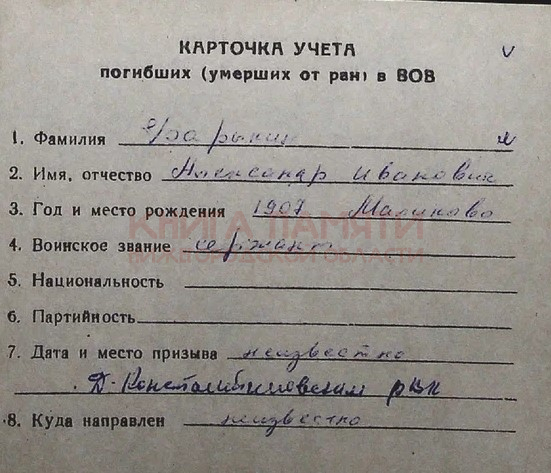 КАРТОЧКА УЧЕТА
погибших (умерших от ран) в ВОВ
1. Фамилия
2. Имя, отчество Александр Иванович
3. Год и место рождения 1907 Малиново
КНИГА ПАМЯТИ
НИЖЕГОРОДСКОЙ ОБЛАСТИ
4. Воинское звание сержант
5. Национальность
6. Партийность
7. Дата и место призыва неизвестно
Д. Константиновским РВК
8. Куда направлен неизвестно